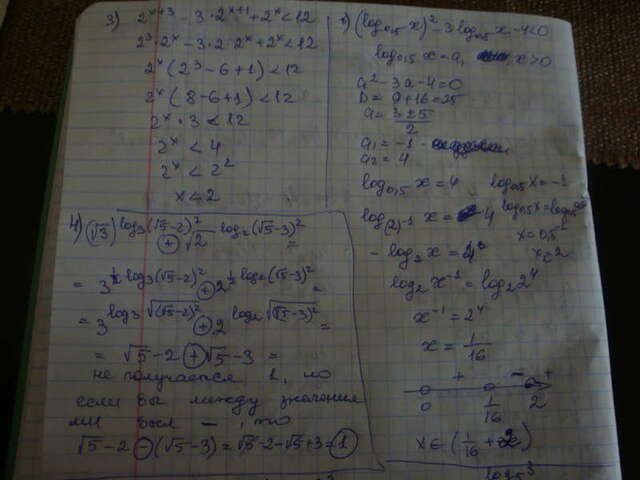 3) 2^{x+3} - 3·2^{x+1} + 2^x < 12
2^3·2^x - 3·2·2^x + 2^x < 12
2^x (2^3 - 6 + 1) < 12
2^x (8 - 6 + 1) < 12
2^x · 3 < 12
2^x < 4
2^x < 2^2
x < 2
4) (√3)^{log_3(√5-2)^2} + √2^{log_2(√5-3)^2} =
= 3^{½ log_3(√5-2)^2} + 2^{½ log_2(√5-3)^2} =
= 3^{log_3 √(√5-2)^2} + 2^{log_2 √(√5-3)^2} =
= √5 - 2 + √5 - 3 =
не получается 1, но
если бы между значения
ми был -, то
√5 - 2 - (√5 - 3) = √5 - 2 - √5 + 3 = 1
(log_{0,5} x)^2 - 3 log_{0,5} x - 4 < 0
log_{0,5} x = a, x > 0
a^2 - 3a - 4 = 0
D = 9 + 16 = 25
a = (3 ± 5)/2
a_1 = -1
a_2 = 4
log_{0,5} x = 4
log_{(2)^{-1}} x = 4
- log_2 x = 4
log_2 x^{-1} = log_2 2^4
x^{-1} = 2^4
x = 1/16
log_{0,5} x = -1
x = 2
+ - +
0 1/16 2
x ∈ (1/16 + 2)